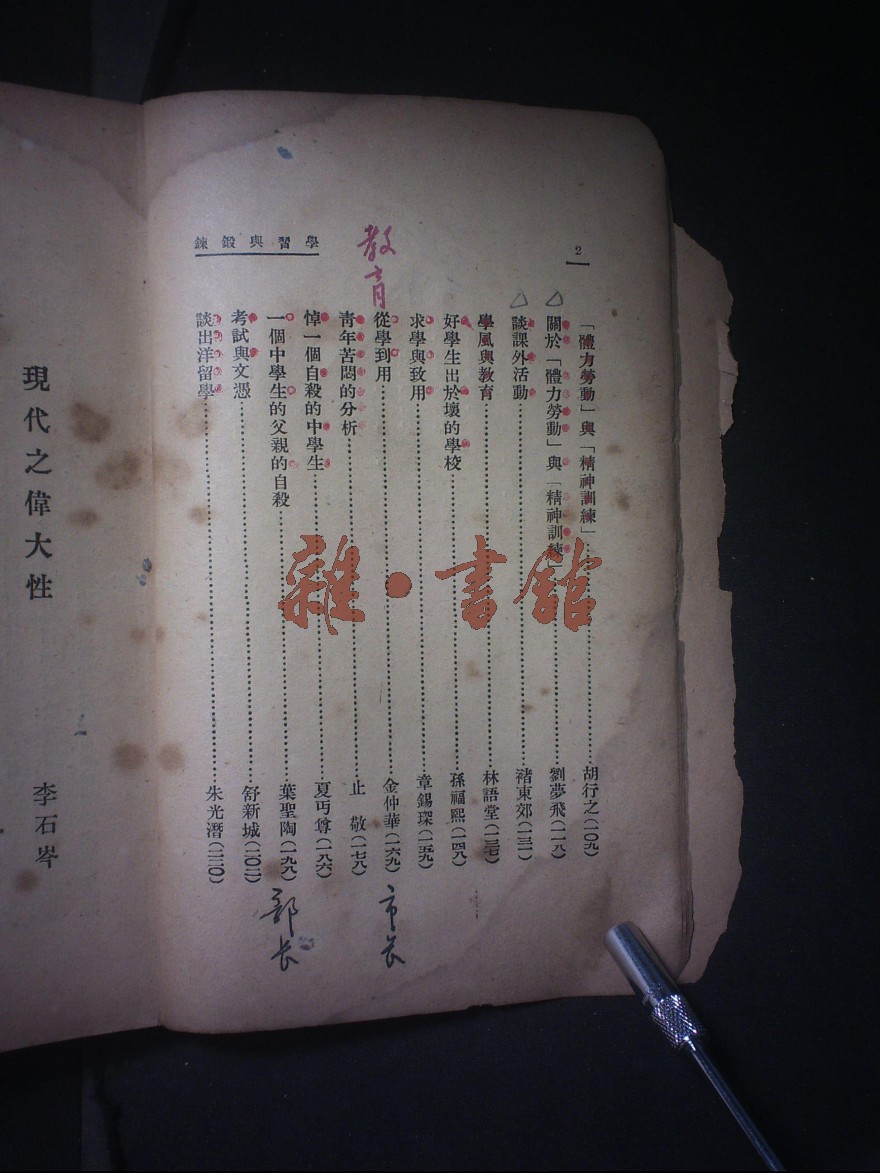 2
學習與鍛鍊
「體力勞動」與「精神訓練」 胡行之(一〇九)
關於「體力勞動」與「精神訓練」 劉夢飛(一一八)
談課外活動 褚東郊(一三一)
學風與教育 林語堂(一三七)
好學生出於壞的學校 孫福熙(一四八)
求學與致用 章錫琛(一五九)
從學到用 金仲華(一六九)
青年苦悶的分析 止敬(一七八)
悼一個自殺的中學生 夏丏尊(一八六)
一個中學生的父親的自殺 葉聖陶(一九八)
考試與文憑 舒新城(二〇二)
談出洋留學 朱光潛(二二〇)
教育
市长
部长
現代之偉大性
李石岑
雜·書館